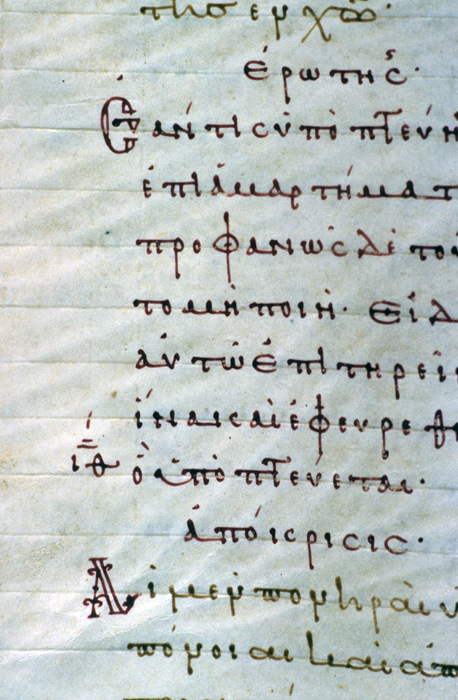 της ἐν χω·
ἐρώτης·
Ἐάν τις ὑποπτεύη
ἐπὶ ἁμαρτήματ
προφανῶς δὲ του
το μὴ ποιῆ· εἰ δ
αὐτῶ ἐπιτηρεῖ
ἵνα καὶ ἐφευρεθ
ιθ ὃ ὑποπτεύεται·
ἀπόκρισις·
Αἱ μὲν πονηραὶ ὑ
πόνοιαι καὶ ἀπ